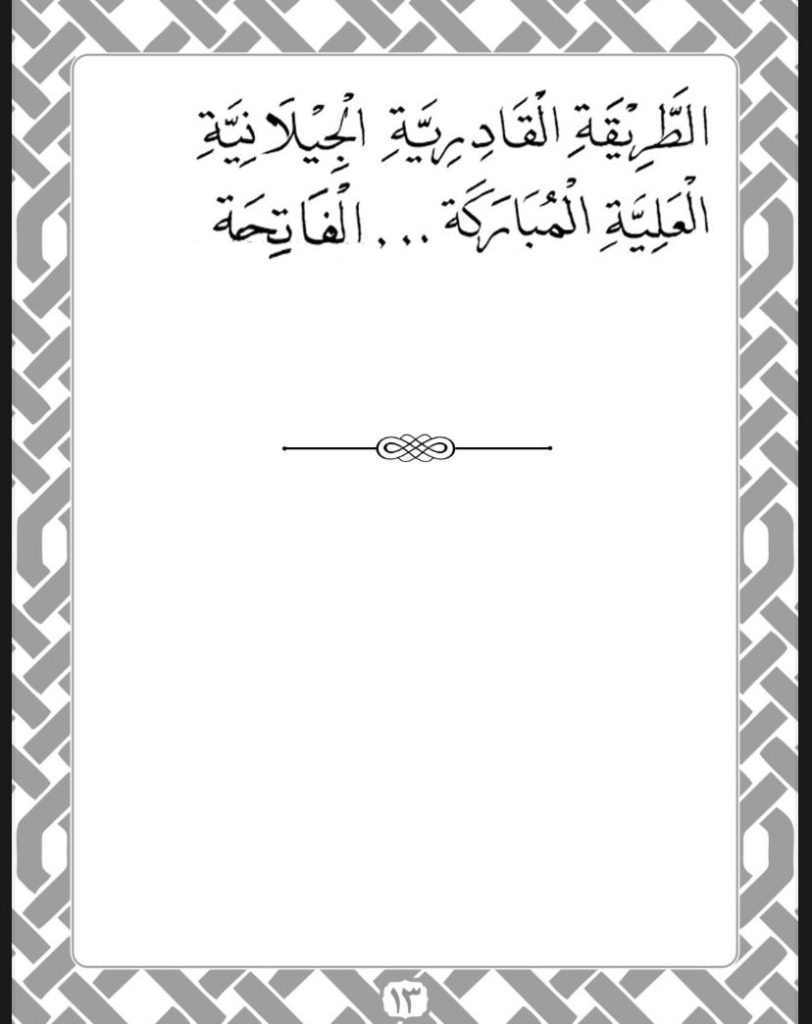 الطَّرِيْقَةِ الْقَادِرِيَّةِ الْجِيْلَانِيَّةِ
الْعَلِيَّةِ الْمُبَارَكَة ... الْفَاتِحَة
١٣